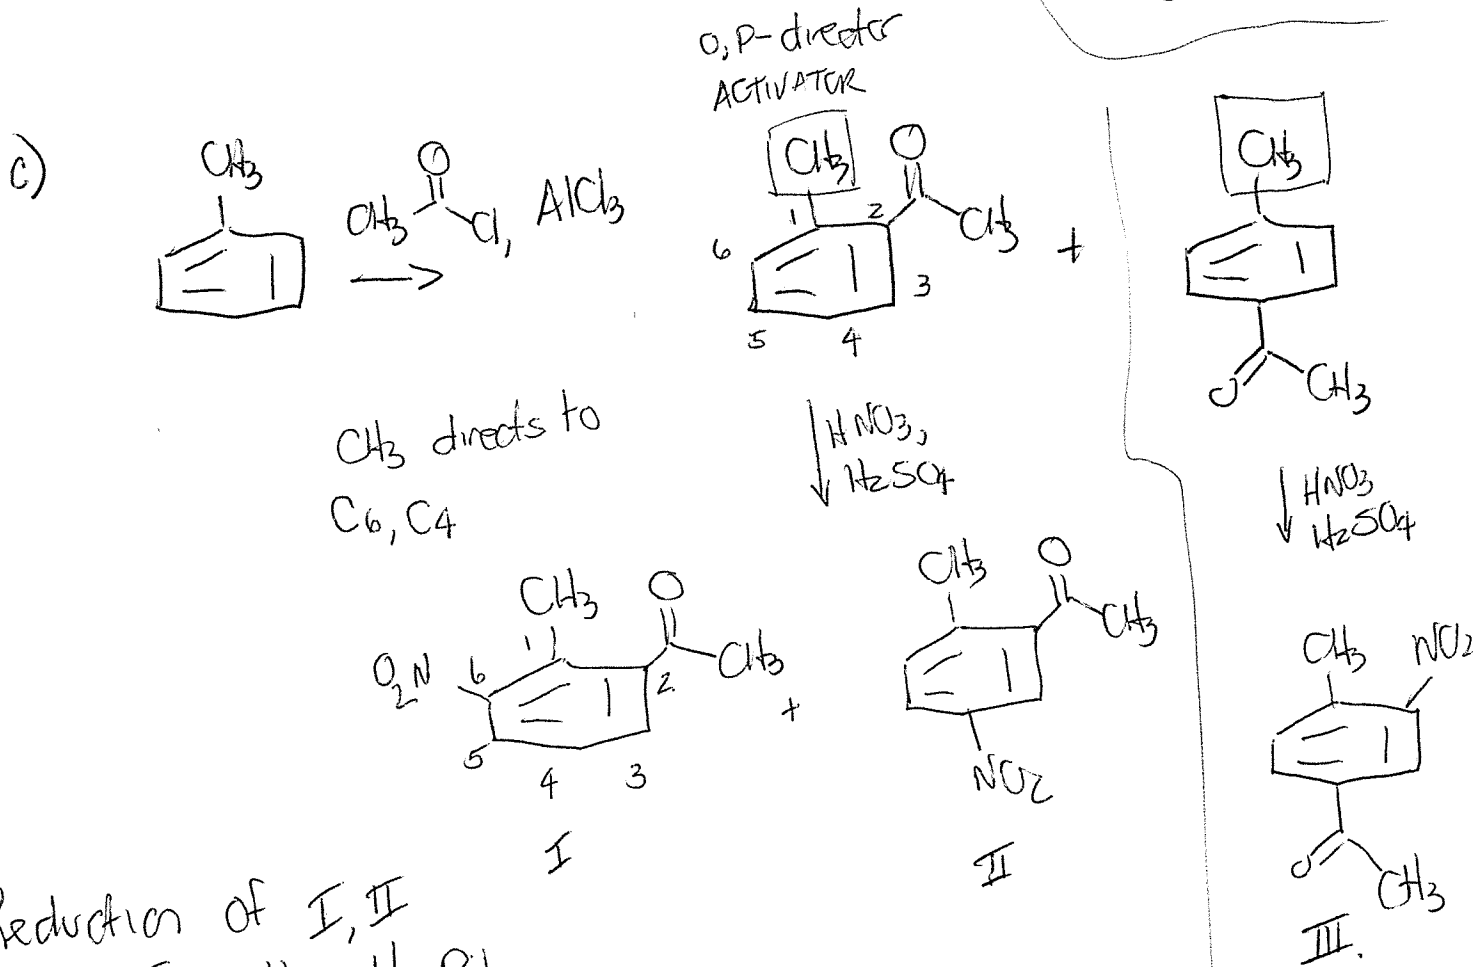 O,P-director
ACTIVATOR
c)
CH3
O
CH3 Cl, AlCl3
CH3 O
1 2 CH3
6 3
5 4
+
CH3
O CH3
CH3 directs to
C6, C4
HNO3,
H2SO4
HNO3
H2SO4
CH3 O
O2N 6 1 2 CH3
5 4 3
+
CH3 O
CH3
NO2
CH3 NO2
O CH3
I
II
III.
Reduction of I, II